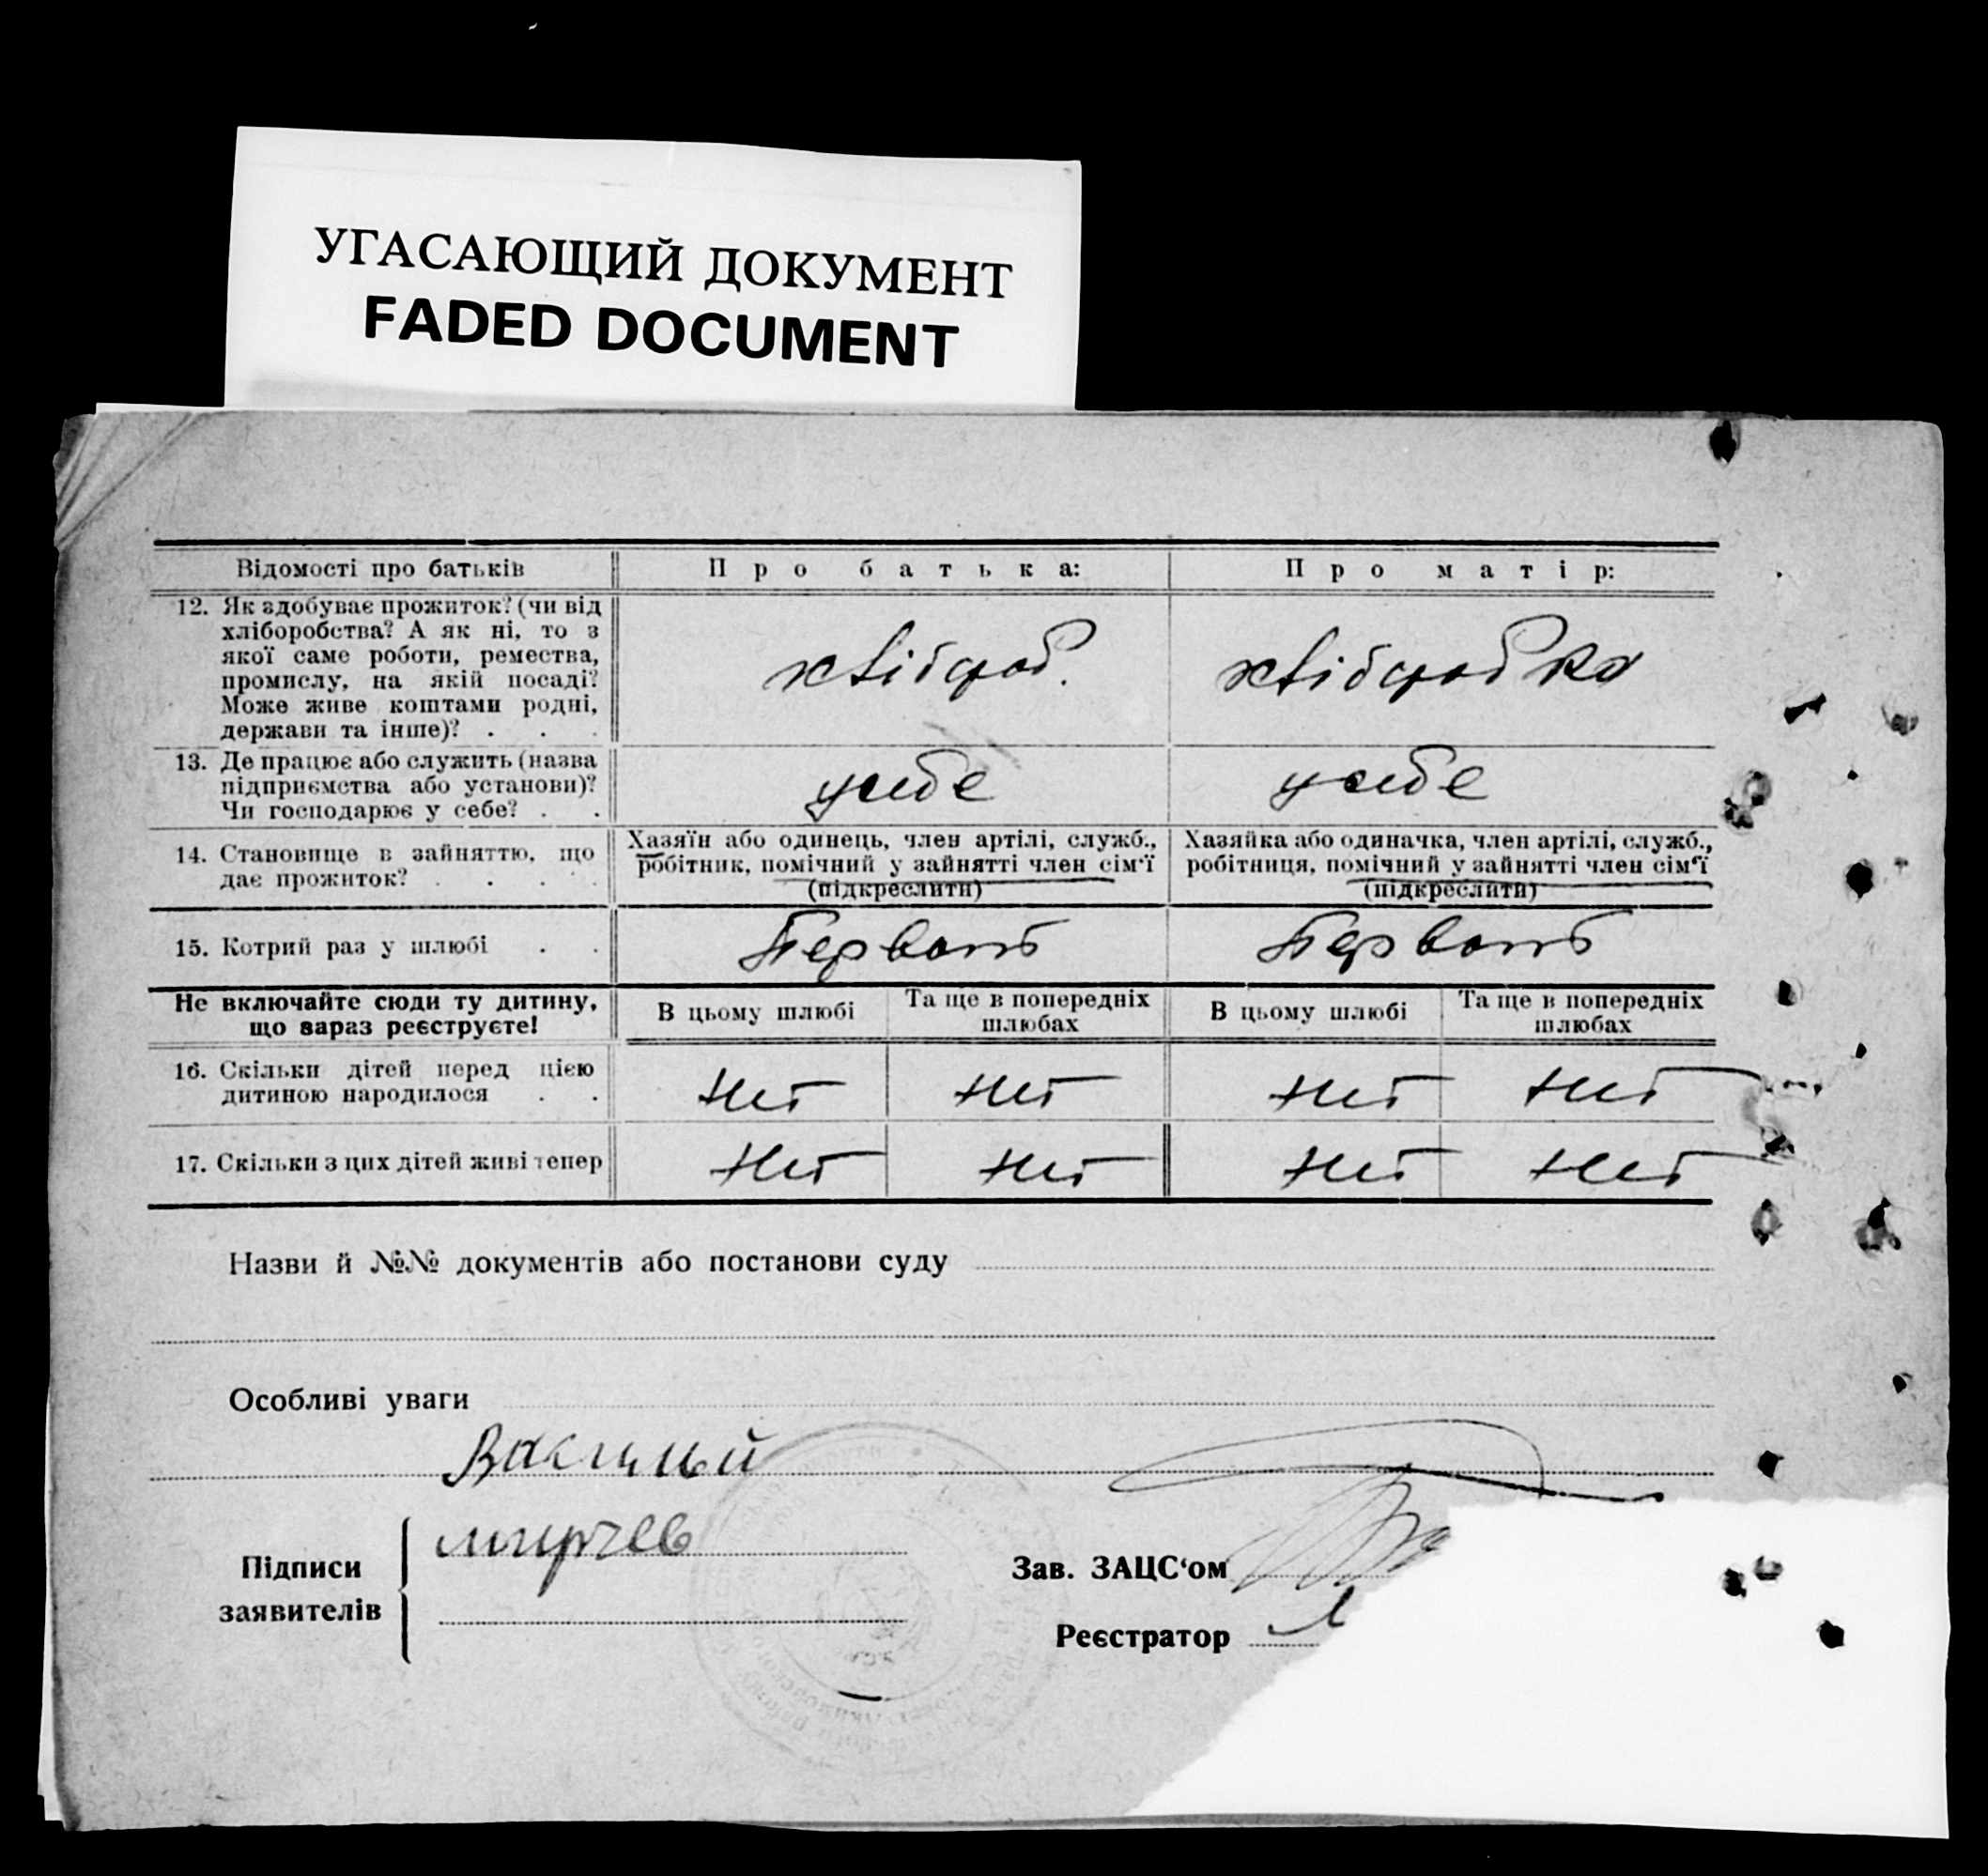 УГАСАЮЩИЙ ДОКУМЕНТ
FADED DOCUMENT
Відомості про батьків
Про батька:
Про матір:
12. Як здобуває прожиток? (чи від
хліборобства? А як ні, то з
якої саме роботи, ремества,
промислу, на якій посаді?
Може живе коштами родні,
держави та інше)? . . .
хлібороб.
хліборобка
13. Де працює або служить (назва
підприємства або установи)?
Чи господарює у себе? . .
усебе
усебе
14. Становище в зайняттю, що
дає прожиток? . . . .
Хазяїн або одинець, член артілі, служб.,
робітник, помічний у зайнятті член сім'ї
(підкреслити)
Хазяйка або одиначка, член артілі, служб.,
робітниця, помічний у зайнятті член сім'ї
(підкреслити)
15. Котрий раз у шлюбі . .
Первый
Первый
Не включайте сюди ту дитину,
що зараз реєструєте!
В цьому шлюбі
Та ще в попередніх
шлюбах
В цьому шлюбі
Та ще в попередніх
шлюбах
16. Скільки дітей перед цією
дитиною народилося . .
Нет
Нет
Нет
Нет
17. Скільки з цих дітей живі тепер
Нет
Нет
Нет
Нет
Назви й №№ документів або постанови суду
Особливі уваги
Підписи
заявителів
Зав. ЗАЦС‘ом
Реєстратор